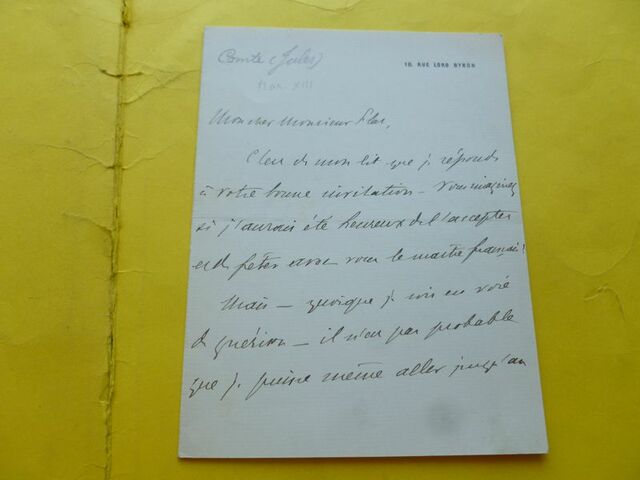 Comte (Jules)
18, RUE LORD BYRON
Mon cher Monsieur
C'est de mon lit que je réponds
à votre bonne invitation – vous imaginez
si j'aurais été heureux de l'accepter
et de fêter avec vous le maître français!
Mais – quoique je sois en voie
de guérison – il n'est pas probable
que je puisse même aller jusqu'au